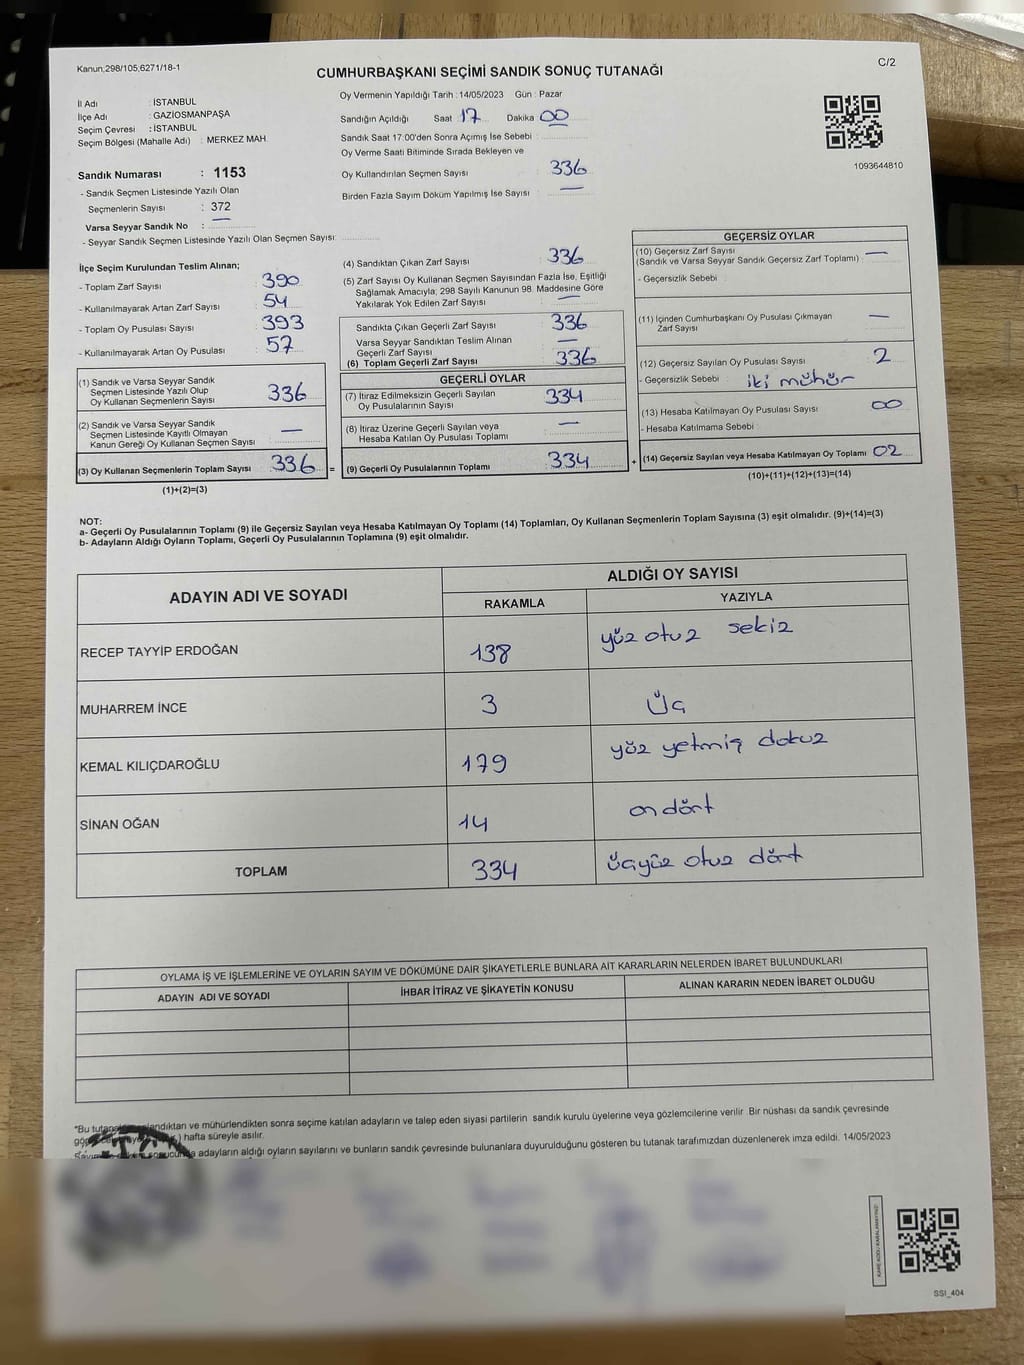 Kanun;298/105,6271/18-1
C/2
CUMHURBAŞKANI SEÇİMİ SANDIK SONUÇ TUTANAĞI
İl Adı : İSTANBUL
İlçe Adı : GAZİOSMANPAŞA
Seçim Çevresi : İSTANBUL
Seçim Bölgesi (Mahalle Adı) : MERKEZ MAH.
Sandık Numarası : 1153
- Sandık Seçmen Listesinde Yazılı Olan
Seçmenlerin Sayısı : 372
Varsa Seyyar Sandık No : —
- Seyyar Sandık Seçmen Listesinde Yazılı Olan Seçmen Sayısı:
Oy Vermenin Yapıldığı Tarih : 14/05/2023 Gün : Pazar
Sandığın Açıldığı Saat 17 Dakika 00
Sandık Saat 17:00'den Sonra Açımış İse Sebebi :
Oy Verme Saati Bitiminde Sırada Bekleyen ve
Oy Kullandırılan Seçmen Sayısı : 336
Birden Fazla Sayım Döküm Yapılmış İse Sayısı : —
1093644810
İlçe Seçim Kurulundan Teslim Alınan;
- Toplam Zarf Sayısı : 390
- Kullanılmayarak Artan Zarf Sayısı : 54
- Toplam Oy Pusulası Sayısı : 393
- Kullanılmayarak Artan Oy Pusulası : 57
(1) Sandık ve Varsa Seyyar Sandık
Seçmen Listesinde Yazılı Olup
Oy Kullanan Seçmenlerin Sayısı : 336
(2) Sandık ve Varsa Seyyar Sandık
Seçmen Listesinde Kayıtlı Olmayan
Kanun Gereği Oy Kullanan Seçmen Sayısı : —
(3) Oy Kullanan Seçmenlerin Toplam Sayısı : 336 =
(1)+(2)=(3)
(4) Sandıktan Çıkan Zarf Sayısı : 336
(5) Zarf Sayısı Oy Kullanan Seçmen Sayısından Fazla İse, Eşitliği
Sağlamak Amacıyla; 298 Sayılı Kanunun 98. Maddesine Göre
Yakılarak Yok Edilen Zarf Sayısı : —
Sandıkta Çıkan Geçerli Zarf Sayısı : 336
Varsa Seyyar Sandıktan Teslim Alınan
Geçerli Zarf Sayısı : —
(6) Toplam Geçerli Zarf Sayısı : 336
GEÇERLİ OYLAR
(7) İtiraz Edilmeksizin Geçerli Sayılan
Oy Pusulalarının Sayısı : 334
(8) İtiraz Üzerine Geçerli Sayılan veya
Hesaba Katılan Oy Pusulası Toplamı : —
(9) Geçerli Oy Pusulalarının Toplamı : 334 +
GEÇERSİZ OYLAR
(10) Geçersiz Zarf Sayısı
(Sandık ve Varsa Seyyar Sandık Geçersiz Zarf Toplamı) : —
- Geçersizlik Sebebi :
(11) İçinden Cumhurbaşkanı Oy Pusulası Çıkmayan
Zarf Sayısı : —
(12) Geçersiz Sayılan Oy Pusulası Sayısı : 2
- Geçersizlik Sebebi : iki mühür
(13) Hesaba Katılmayan Oy Pusulası Sayısı : 00
- Hesaba Katılmama Sebebi :
(14) Geçersiz Sayılan veya Hesaba Katılmayan Oy Toplamı : 02
(10)+(11)+(12)+(13)=(14)
NOT:
a- Geçerli Oy Pusulalarının Toplamı (9) ile Geçersiz Sayılan veya Hesaba Katılmayan Oy Toplamı (14) Toplamları, Oy Kullanan Seçmenlerin Toplam Sayısına (3) eşit olmalıdır. (9)+(14)=(3)
b- Adayların Aldığı Oyların Toplamı, Geçerli Oy Pusulalarının Toplamına (9) eşit olmalıdır.
ADAYIN ADI VE SOYADI
ALDIĞI OY SAYISI
RAKAMLA YAZIYLA
RECEP TAYYİP ERDOĞAN 138 yüz otuz sekiz
MUHARREM İNCE 3 Üç
KEMAL KILIÇDAROĞLU 179 yüz yetmiş dokuz
SİNAN OĞAN 14 on dört
TOPLAM 334 üçyüz otuz dört
OYLAMA İŞ VE İŞLEMLERİNE VE OYLARIN SAYIM VE DÖKÜMÜNE DAİR ŞİKAYETLERLE BUNLARA AİT KARARLARIN NELERDEN İBARET BULUNDUKLARI
ADAYIN ADI VE SOYADI İHBAR İTİRAZ VE ŞİKAYETİN KONUSU ALINAN KARARIN NEDEN İBARET OLDUĞU
*Bu mühürlendikten sonra seçime katılan adayların ve talep eden siyasi partilerin sandık kurulu üyelerine veya gözlemcilerine verilir. Bir nüshası da sandık çevresinde
hafta süreyle asılır.
adayların aldığı oyların sayılarını ve bunların sandık çevresinde bulunanlara duyurulduğunu gösteren bu tutanak tarafımızdan düzenlenerek imza edildi. 14/05/2023
SSI_404